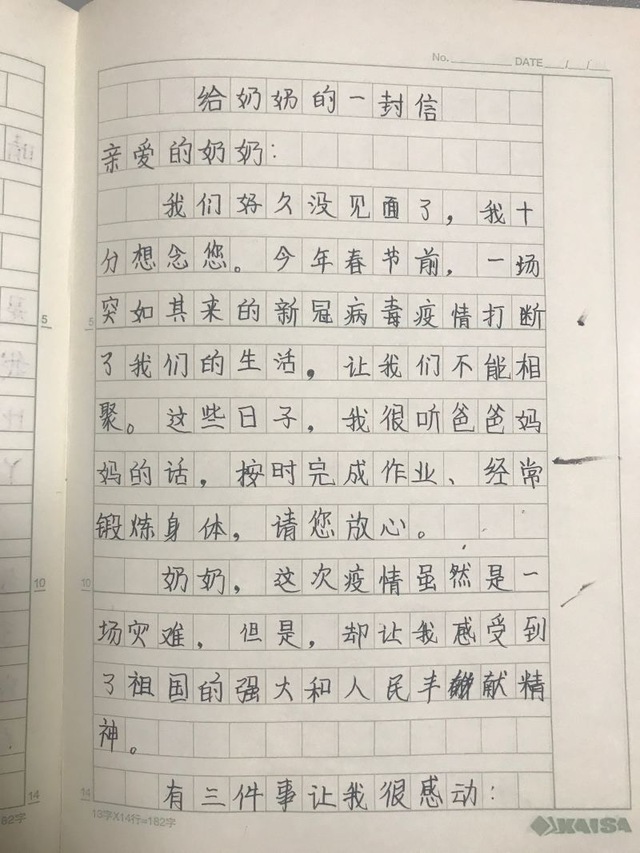 No. DATE / /
给奶奶的一封信
亲爱的奶奶：
我们好久没见面了，我十
分想念您。今年春节前，一场
突如其来的新冠病毒疫情打断
了我们的生活，让我们不能相
聚。这些日子，我很听爸爸妈
妈的话，按时完成作业、经常
锻炼身体，请您放心。
奶奶，这次疫情虽然是一
场灾难，但是，却让我感受到
了祖国的强大和人民丰献精
神。
有三件事让我很感动：
5
10
14
13字X14行=182字
KAISA
5
10
14
82字